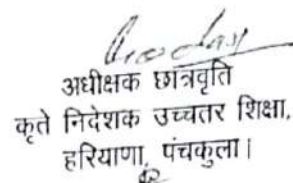 अधीक्षक छात्रवृति
कृते निदेशक उच्चतर शिक्षा,
हरियाणा, पंचकुला।